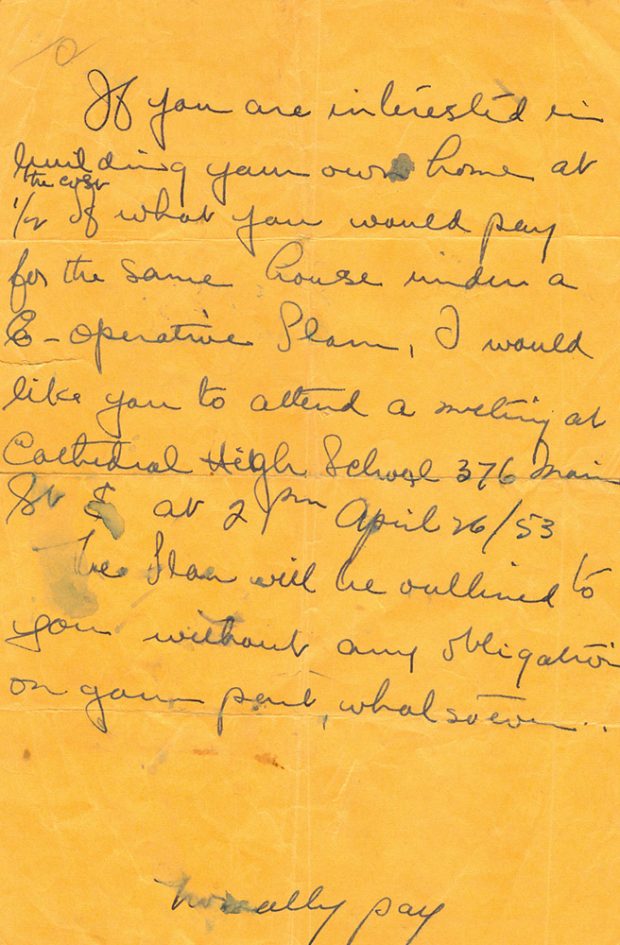 If you are interested in
building your own home at
the cost
1/2 of what you would pay
for the same house under a
Co-operative Plan, I would
like you to attend a meeting at
Cathedral High School 376 Main
St E at 2 pm April 26/53
The Plan will be outlined to
you without any obligation
on your part, whatsoever..
normally pay